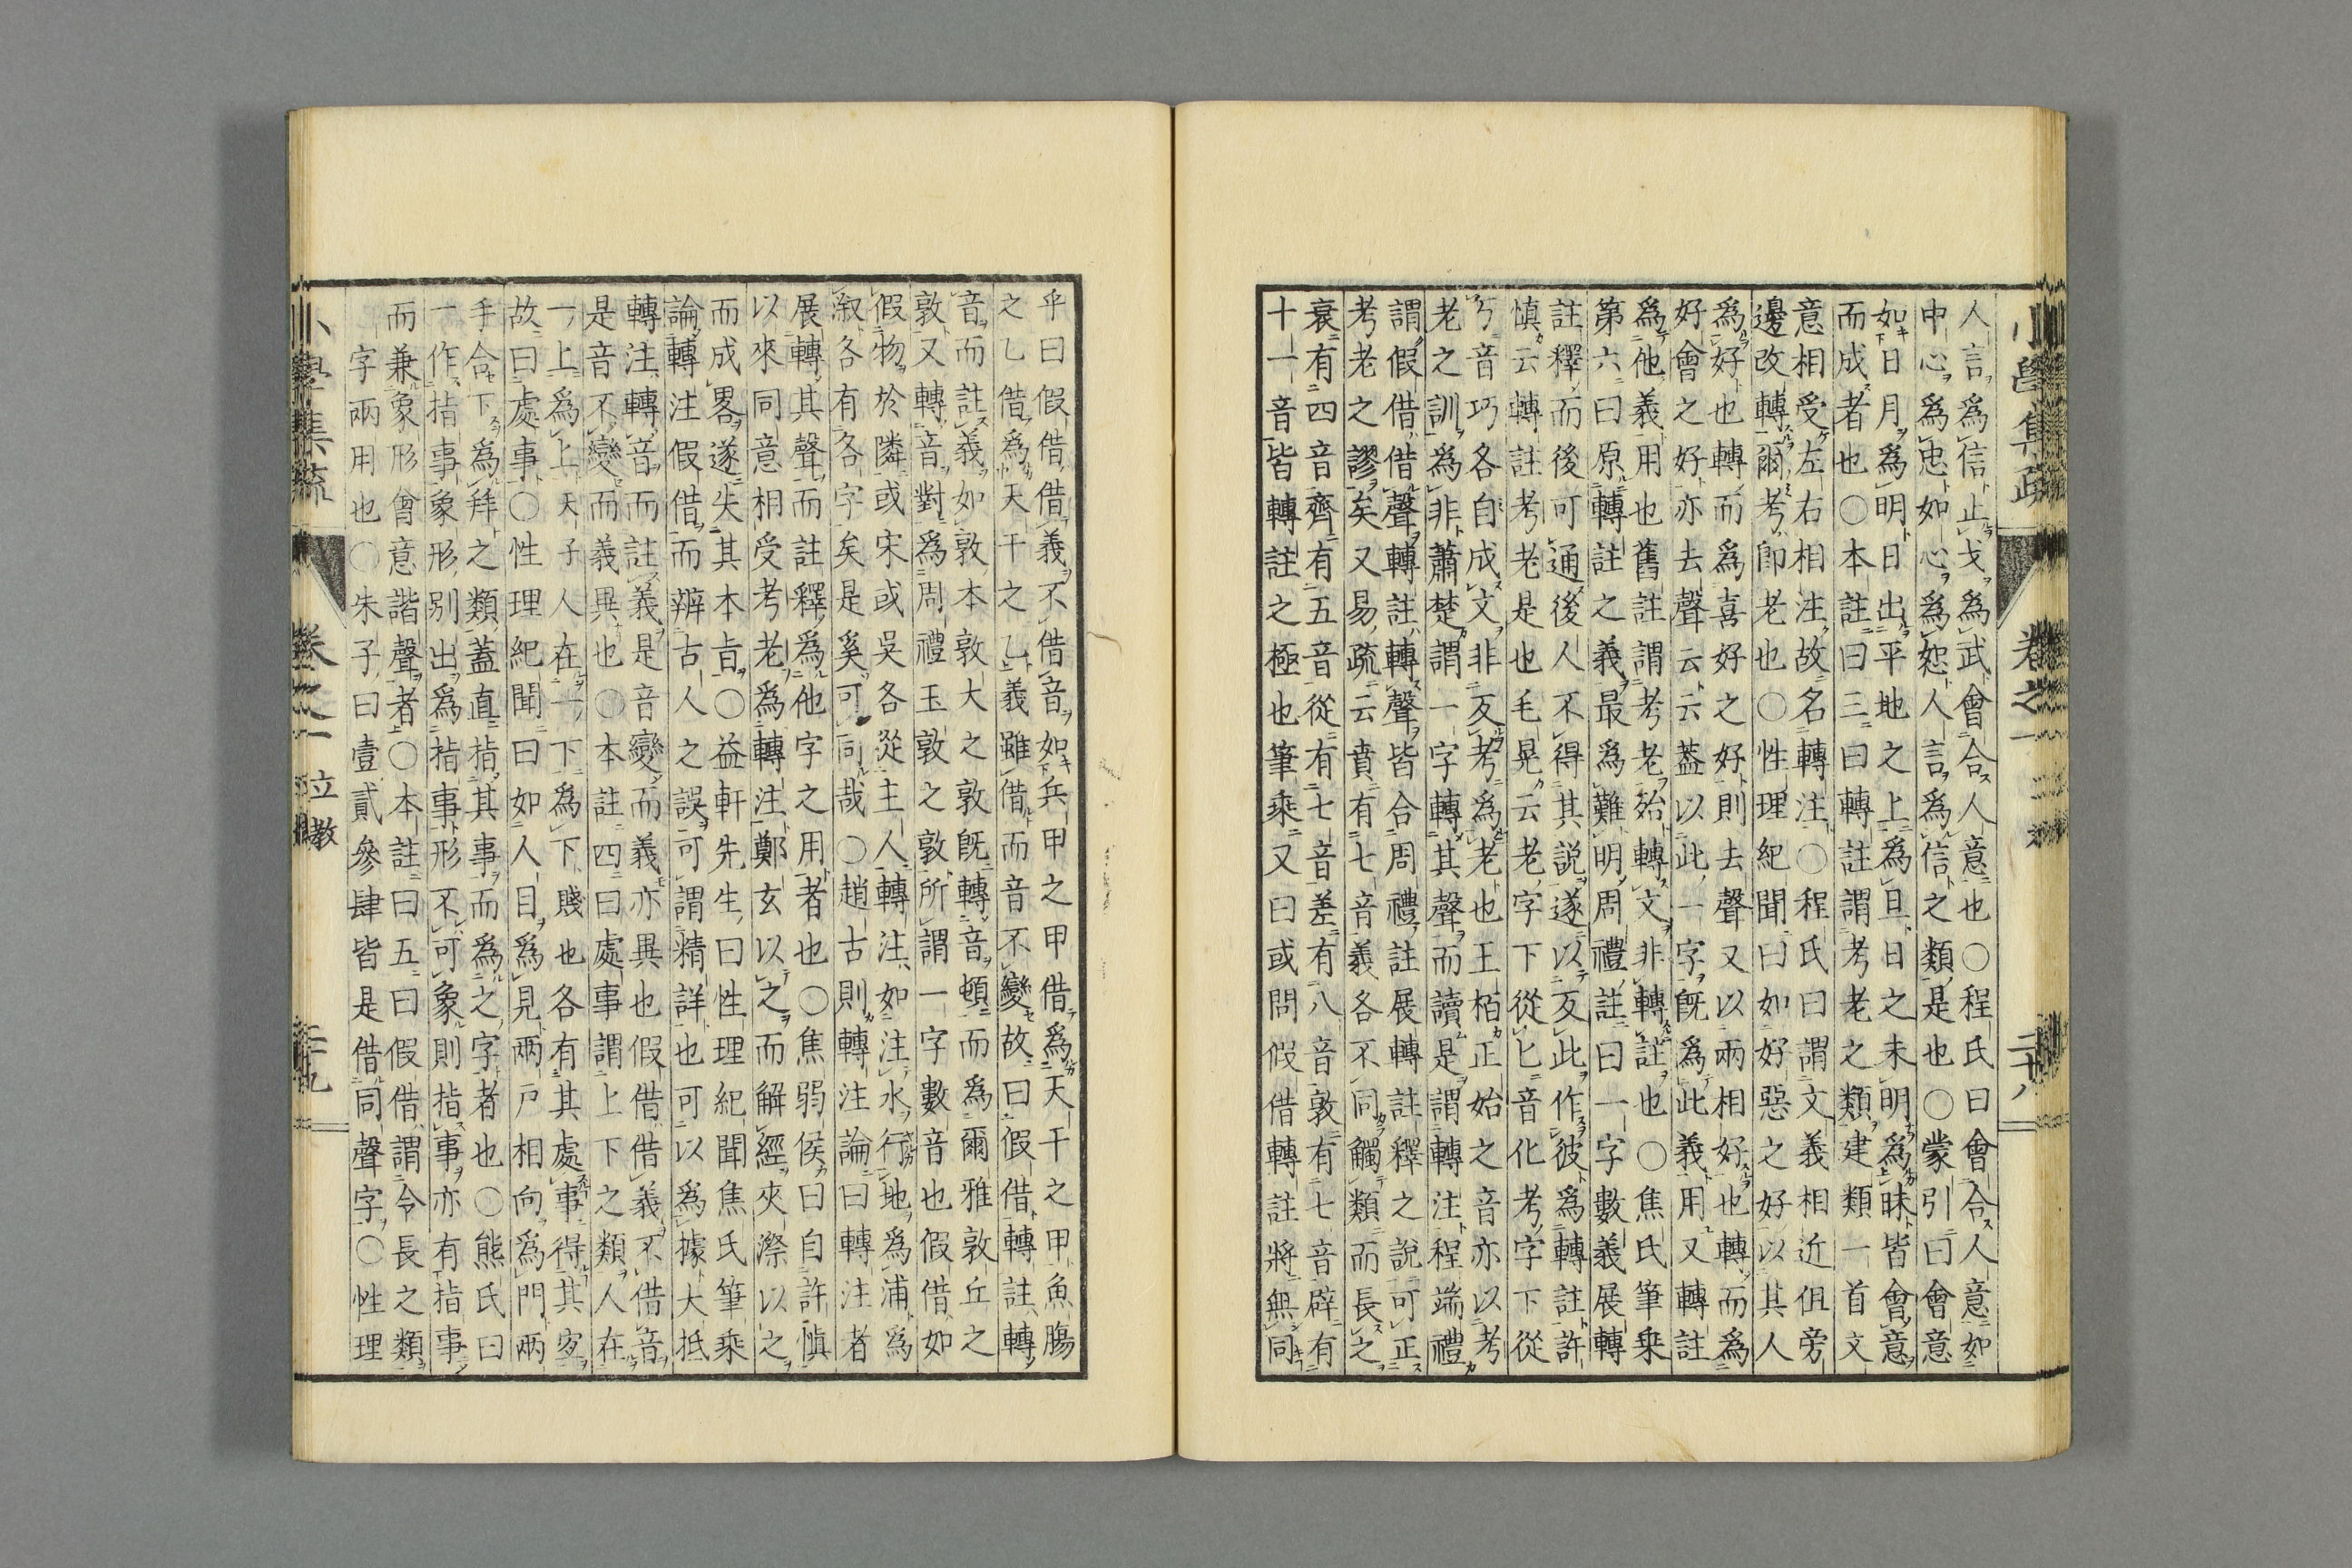 人言爲信止戈爲武會合人意也〇程氏曰會合人意如
中心爲忠如心爲恕人言爲信之類是也〇蒙引曰會意
如日月爲明日出平地之上爲旦日之未明爲昧皆會意
而成者也〇本註曰三曰轉註謂考老之類建類一首文
意相受左右相注故名轉注〇程氏曰謂文義相近但旁
邊改轉爾考卽老也〇性理紀聞曰如好惡之好以其人
爲好也轉而爲喜好之好則去聲又以兩相好也轉而爲
好會之好亦去聲云云葢以此一字旣爲此義用又轉註
爲他義用也舊註謂考老始轉文非轉註也〇焦氏筆乗
第六曰原轉註之義最爲難明周禮註曰一字數義展轉
註釋而後可通後人不得其說遂以反此作彼爲轉註許
愼云轉註考老是也毛晃云老字下從匕音化考字下從
丂音巧各自成文非反考爲老也王栢正始之音亦以考
老之訓爲非蕭楚謂一字轉其聲而讀是謂轉注程端禮
謂假借借聲轉註轉聲皆合周禮註展轉註釋之說可正
考老之謬矣又易疏云賁有七音義各不同觸類而長之
衰有四音齊有五音從有七音差有八音敦有七音辟有
十一音皆轉註之極也筆乘又曰或問假借轉註將無同
乎曰假借借義不借音如兵甲之甲借爲天干之甲魚腸
之乙借爲天干之乙義雖借而音不變故曰假借轉註轉
音而註義如敦本敦大之敦旣轉音頓而爲爾雅敦丘之
敦又轉音對爲周禮玉敦之敦所謂一字數音也假借如
假物於隣或宋或吳各從主人轉注如注水行地爲浦爲
溆各有各字矣是奚可同哉〇趙古則轉注論曰轉注者
展轉其聲而註釋爲他字之用者也〇焦弱侯曰自許愼
以來同意相受考老爲轉注鄭玄以之而解經夾漈以之
而成畧遂失其本旨〇益軒先生曰性理紀聞焦氏筆乘
論轉注假借而辨古人之誤可謂精詳也可以爲據大抵
轉注轉音而註義是音變而義亦異也假借借義不借音
是音不變而義異也〇本註四曰處事謂上下之類人在
一上爲上天子人在一下爲下賤也各有其處事得其宐
故曰處事〇性理紀聞曰如人目爲見兩戸相向爲門兩
手合下爲拜之類葢直指其事而爲之字者也〇熊氏曰
一作指事象形別出爲指事形不可象則指事亦有指事
而兼象形會意諧聲者〇本註曰五曰假借謂令長之類
字兩用也〇朱子曰壹貳參肆皆是借同聲字〇性理
小學集疏
卷之一
立教
二十九
卷之一
二十八